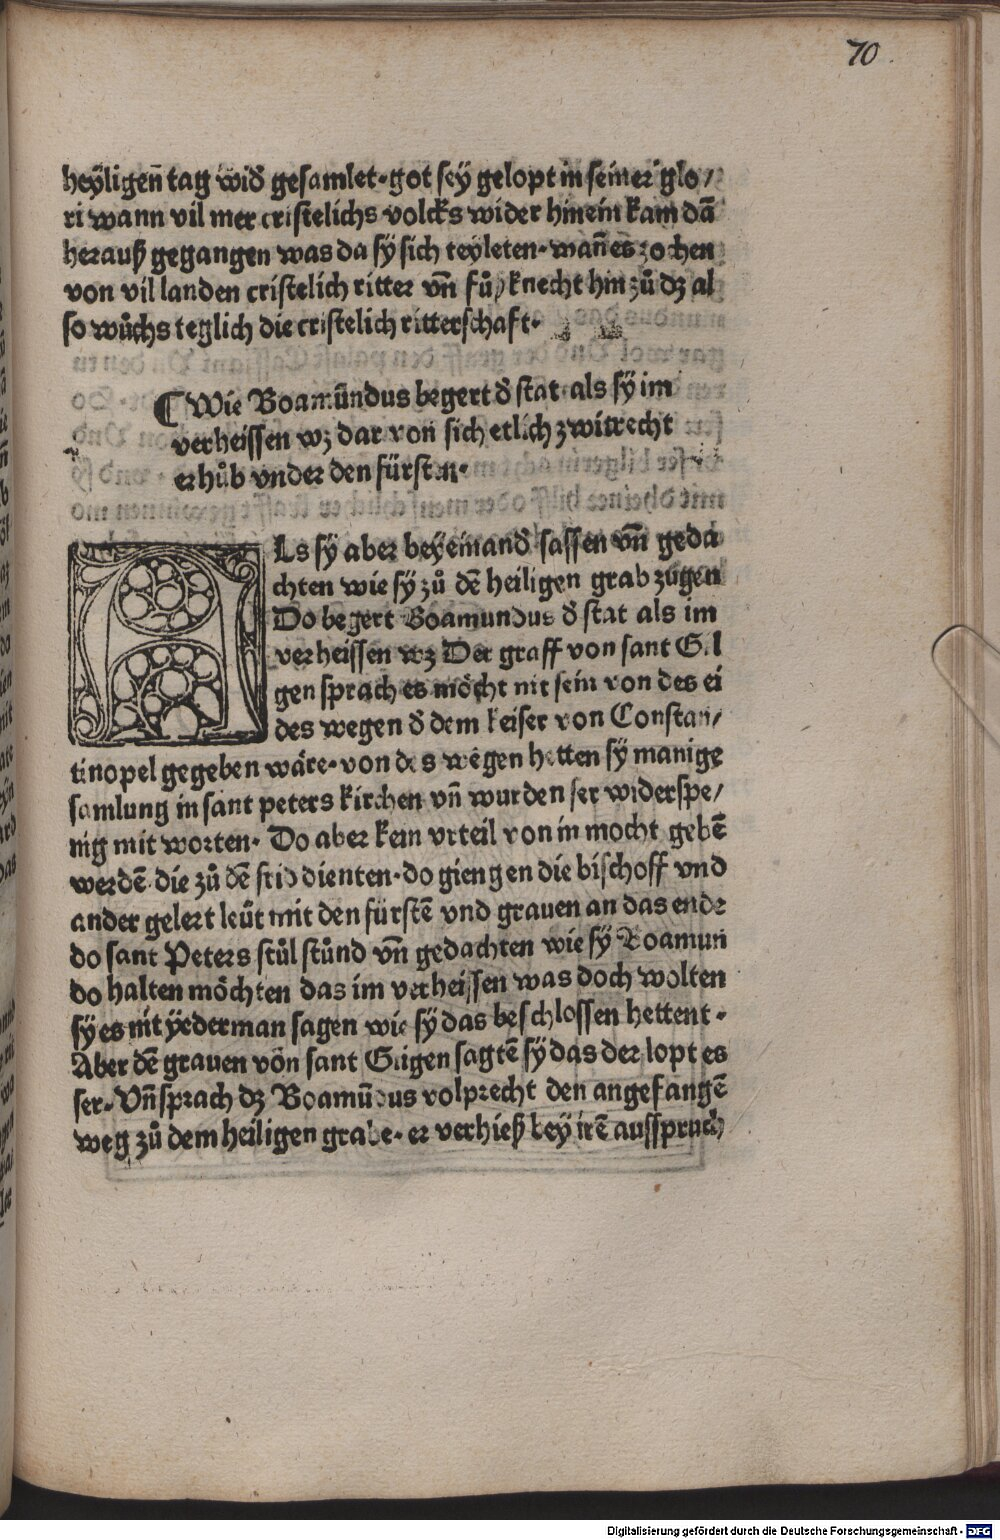 70
heyligen̄ tag wid̕ gesamlet·got sey gelopt in seiner glo/
ri wann vil mer cristelichs volcks wider hinein kam dā
herauß gegangen was da sÿ sich teyleten·wan̄ es zochen
von vil landen cristelich ritter vn̄ fůßknecht hin zů dz al
so wůchs teglich die cristelich ritterschaft·
¶ Wie Boamūndus begert d̕ stat als sÿ im
verheissen wz dar von sich etlich zwitrecht
erhůb vnder den fürsten·
ALs sÿ aber beyeinand̕ sassen vn̄ geda
chten wie sÿ zů dē heiligen grab zugen
Do begert Boamundus d̕ stat als im
verheissen wz Der graff von sant Gil
gen sprach es möcht nit sein von des ei
des wegen d̕ dem keiser von Constan/
tinopel gegeben wäre·von des wegen hetten sÿ manige
samlung in sant peters kirchen vn̄ wurden ser widerspe/
nig mit worten· Do aber kein vrteil von in mocht gebē
werdē die zů dē frid dienten·do giengen die bischoff vnd
ander gelert leüt mit den fürstē vnd grauen an das ende
do sant Peters stůl stůnd vn̄ gedachten wie sÿ Boamun
do halten möchten das im verheissen was doch wolten
sÿ es nit yederman sagen wie sÿ das beschlossen hettent·
Aber dē grauen von sant Gilgen sagtē sÿ das der lopt es
ser·Vn̄ sprach dz Boamūdus volprecht den angefangē
weg zů dem heiligen grabe·er verhieß bey irē ausspruch
Digitalisierung gefördert durch die Deutsche Forschungsgemeinschaft - DFG